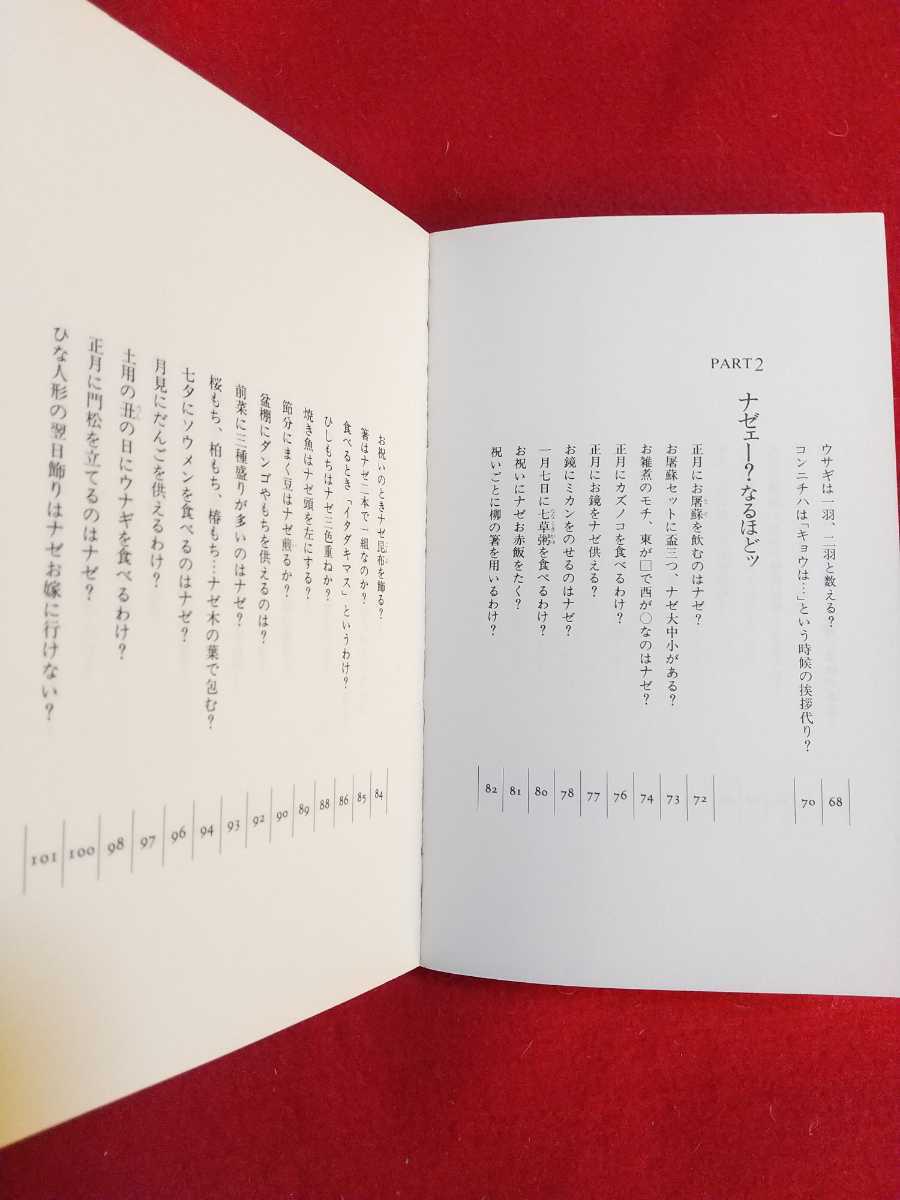 ウサギは一羽、二羽と数える？ 68
コンニチハは「キョウは…」という時候の挨拶代り？ 70
PART2 ナゼェー？なるほどッ
正月にお屠蘇を飲むのはナゼ？ 72
お屠蘇セットに盃三つ、ナゼ大中小がある？ 73
お雑煮のモチ、東が□で西が○なのはナゼ？ 74
正月にカズノコを食べるわけ？ 76
正月にお鏡をナゼ供える？ 77
お鏡にミカンをのせるのはナゼ？ 78
一月七日に七草粥を食べるわけ？ 80
お祝いにナゼお赤飯をたく？ 81
祝いごとに柳の箸を用いるわけ？ 82
お祝いのときナゼ昆布を飾る？ 84
箸はナゼ二本で一組なのか？ 85
食べるとき「イタダキマス」というわけ？ 86
ひしもちはナゼ三色重ねか？ 88
焼き魚はナゼ頭を左にする？ 89
節分にまく豆はナゼ煎るか？ 90
盆棚にダンゴやもちを供えるのは？ 92
前菜に三種盛りが多いのはナゼ？ 93
桜もち、柏もち、椿もち…ナゼ木の葉で包む？ 94
七夕にソウメンを食べるのはナゼ？ 96
月見にだんごを供えるわけ？ 97
土用の丑の日にウナギを食べるわけ？ 98
正月に門松を立てるのはナゼ？ 100
ひな人形の翌日飾りはナゼお嫁に行けない？ 101